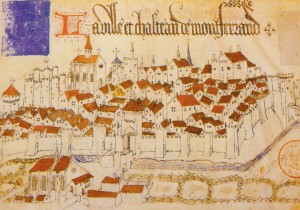 La ville et chasteau de monferrand